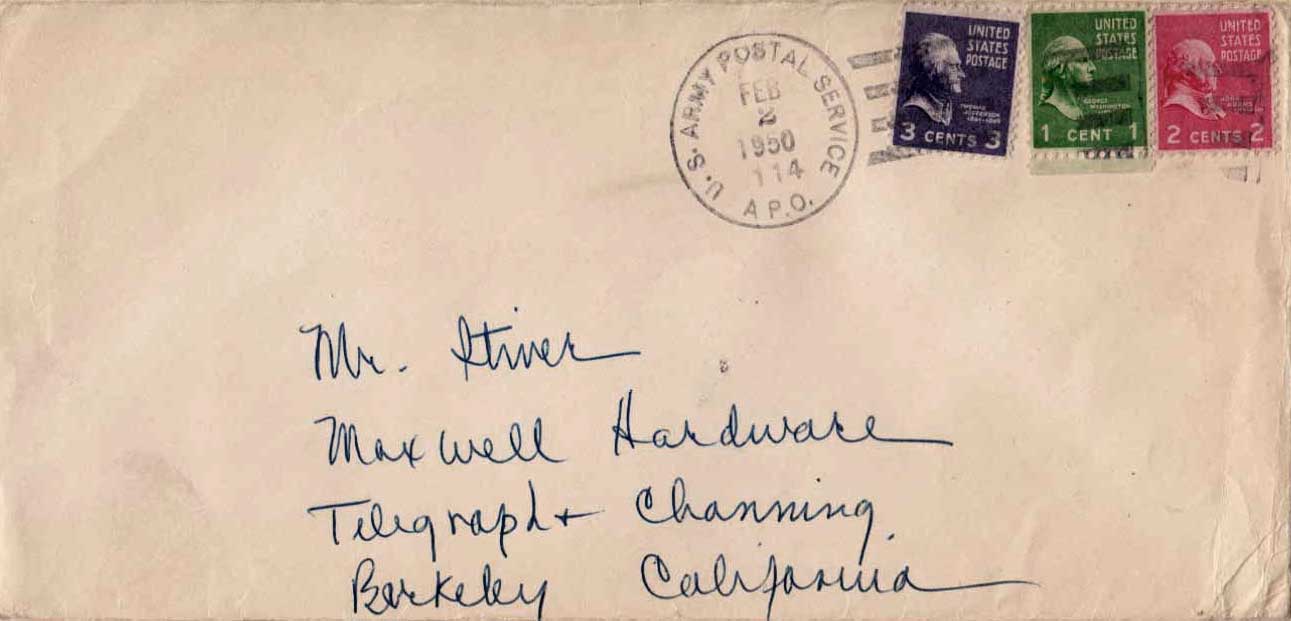 U.S. ARMY POSTAL SERVICE
FEB
2
1950
114
A.P.O.
UNITED
STATES
POSTAGE
THOMAS
JEFFERSON
3 CENTS 3
UNITED
STATES
POSTAGE
GEORGE
WASHINGTON
1 CENT 1
UNITED
STATES
POSTAGE
JOHN
ADAMS
2 CENTS 2
Mr. Stiver
Maxwell Hardware
Telegraph + Channing
Berkeley California